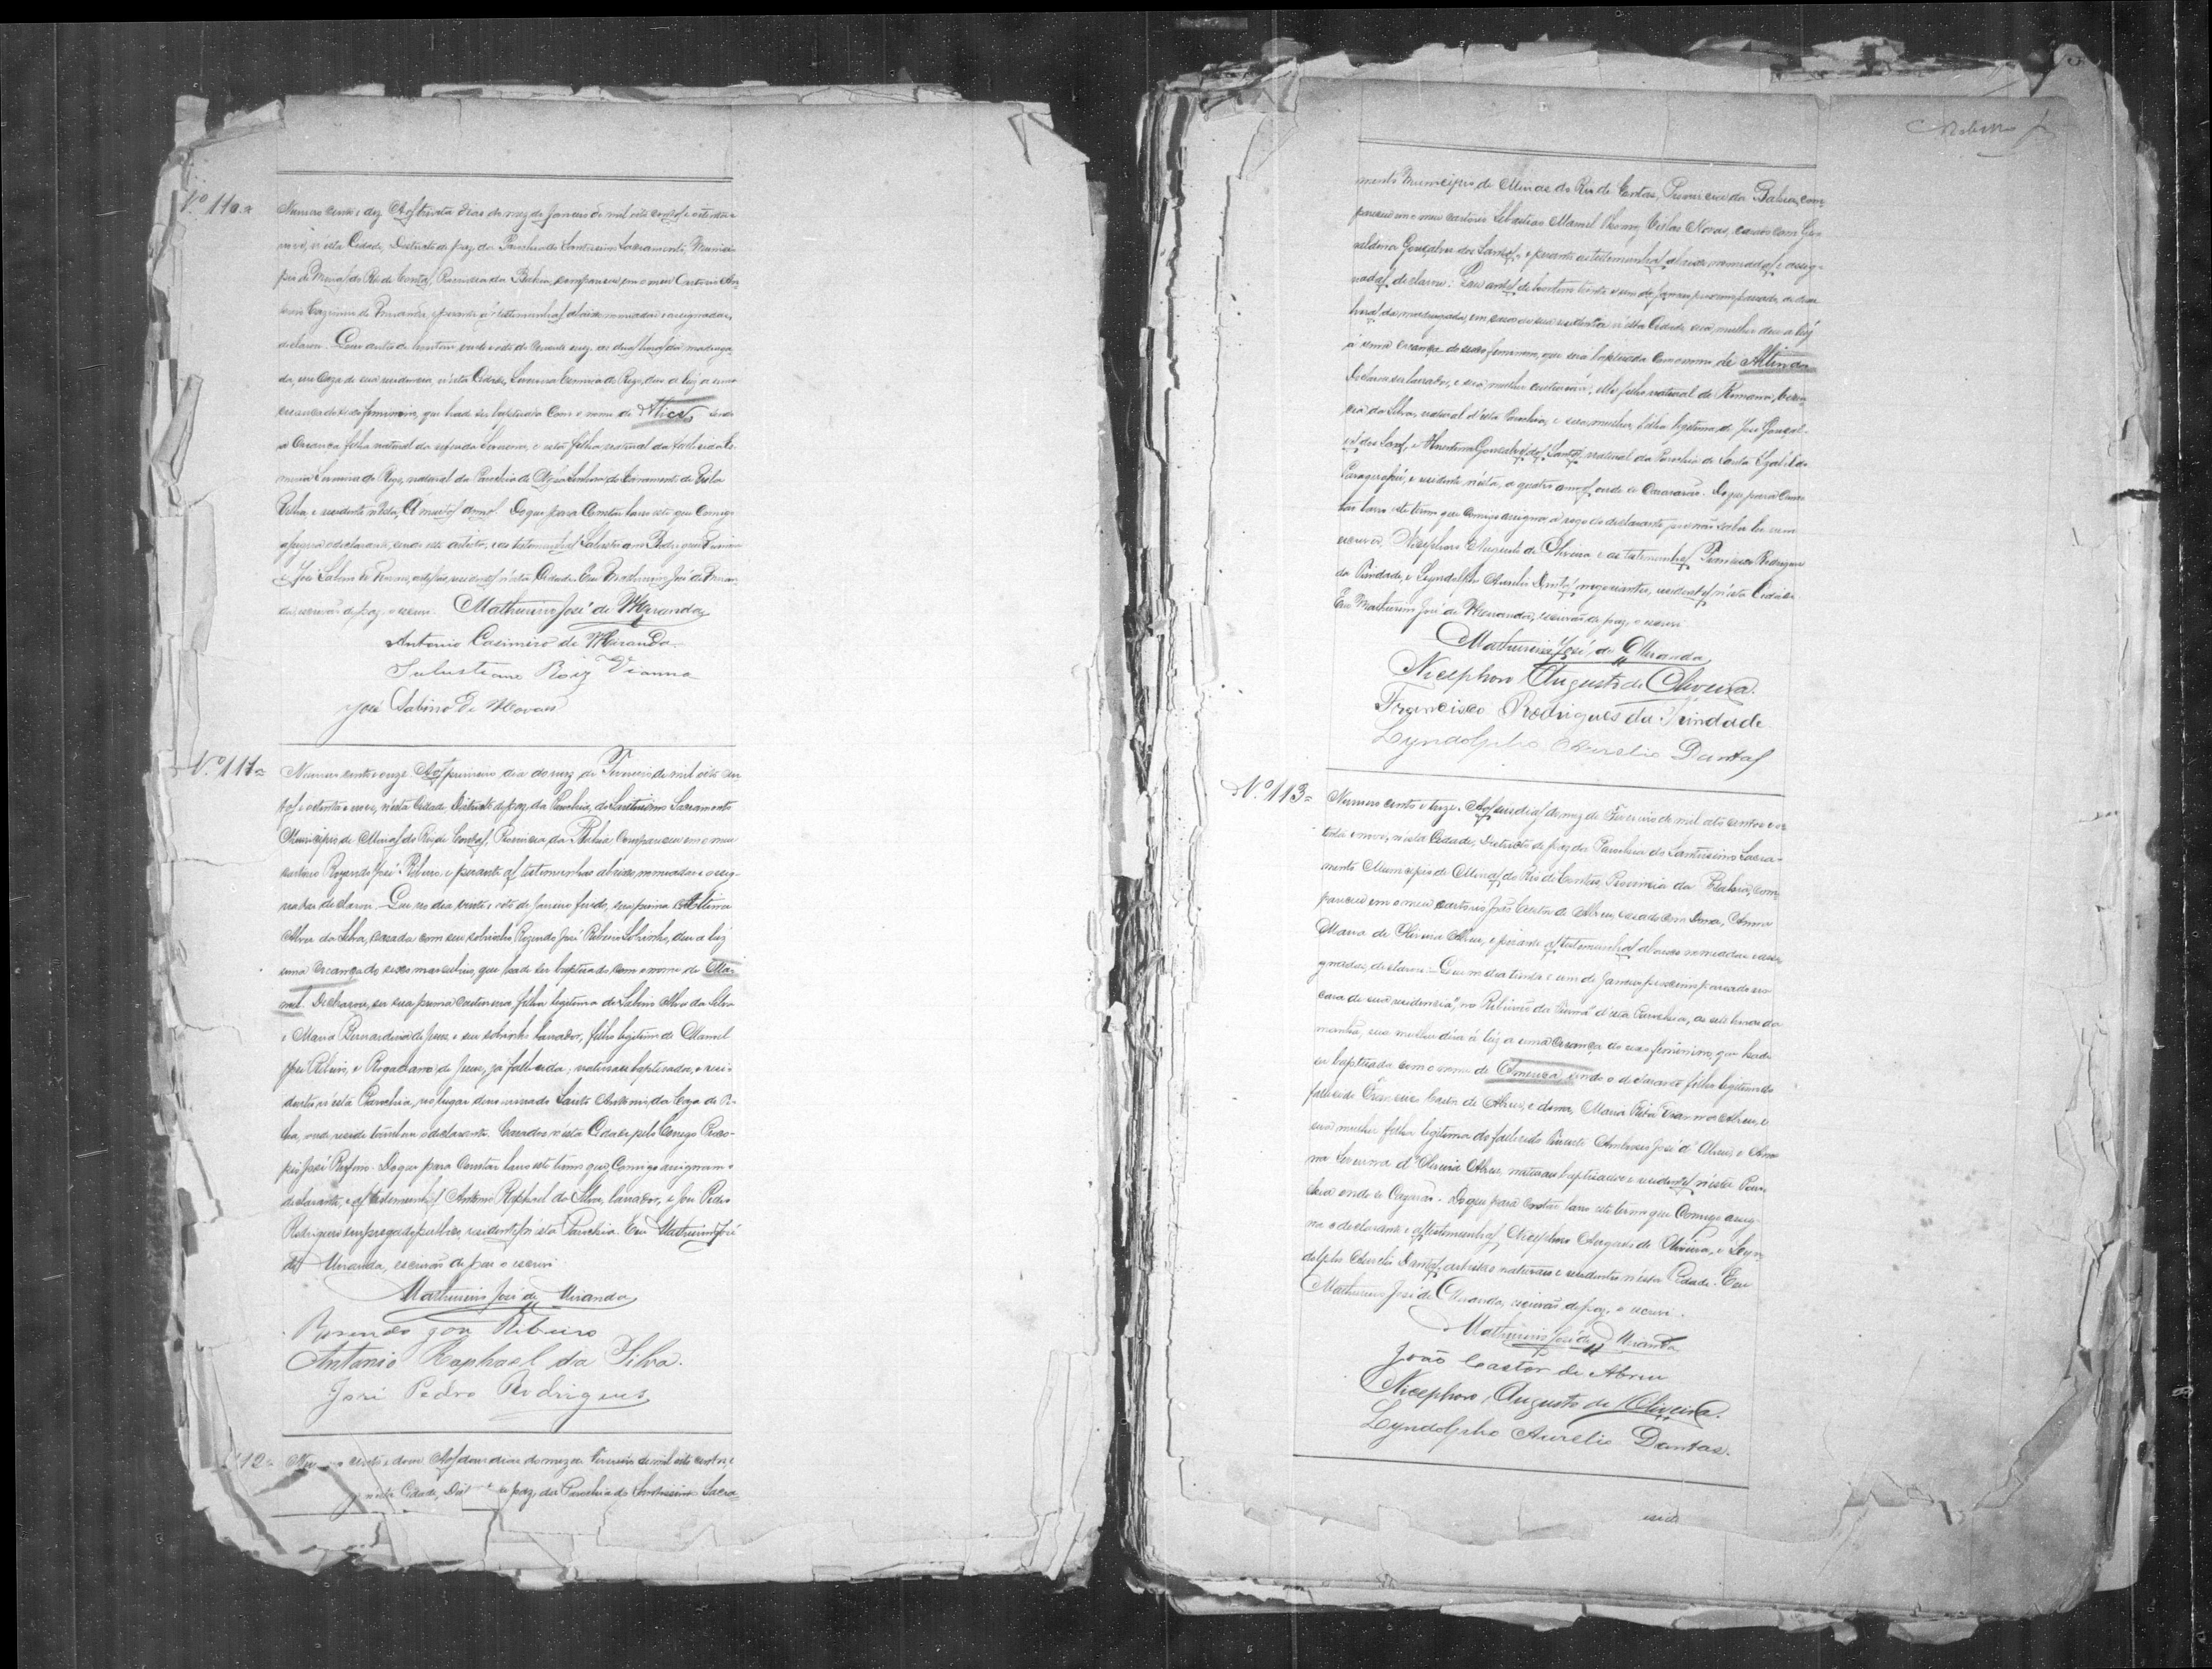 Nº 110=
Numero cento e dez Aos trinta dias do mez de Janeiro de mil oito centos e oitenta e
nove, n'esta Cidade, Destricto de paz da Parochia do Santissimo Sacramento, Munici-
pio de Minas do Rio de Contas, Provincia da Bahia, compareceu em o meu Cartorio An-
tonio Cazimiro de Miranda, e perante as testemunhas abaixo nomeadas e assignadas,
declarou. Que antes de hontem, vinte e oito do corrente mez, as duas horas da madruga-
da, em Caza de sua residencia, n'esta Cidade, do Rego, deu a luz a uma
creança do sexo femenino, que hade ser baptisada com o nome de Alice, sendo
a Creança filha natural da referida e esta filha natural da fallecida
do Rego, natural da Parochia de Nossa Senhora do Livramento da Villa
Velha, e residente n'esta, a muitos annos. Do que para Constar lavro este que Comigo
assigna o declarante, sendo este artista, e as testemunhas Salustiano Rodrigues Vianna
e José Sabino de Moraes, residentes n'esta Cidade. Eu Mathurino José de Miran-
da, escrivão de paz, o escrevi. Mathurino José de Miranda
Antonio Casimiro de Miranda
Salustiano Roiz Vianna
José Sabino de Moraes
Nº 111=
Numero cento e onze. Aos primeiro dia do mez de Fevereiro de mil oito cen-
tos e oitenta e nove, n'esta Cidade Districto de paz da Parochia do Santissimo Sacramento
Municipio de Minas do Rio de Contas, Provincia da Bahia Compareceu em o meu
cartorio Rozendo José Ribeiro, e perante as testemunhas abaixo nomeadas e assig-
nadas declarou. Que no dia vinte e oito de Janeiro findo, sua prima
Alves da Silva, casada com seu sobrinho Rozendo José Ribeiro Sobrinho, deu a luz
uma creança do sexo masculino, que hade ser baptisado com o nome de Ma-
noel. Declarou, ser sua prima Costureira filha legitima de Sabino Alves da Silva
e Maria Bernardina de Jesus, e seu sobrinho lavrador, filho legitimo de Manoel
José Ribeiro, e Rogaciana de Jesus, já fallecida, naturaes baptisados, e resi-
dentes n'esta Parochia, no lugar denominado Santo Antonio da
onde reside tambem o declarante. Cazados n'esta Cidade pelo Conego
José Rufino. Do que para Constar lavro este termo que Comigo assignam o
declarante, e as testemunhas Antonio Raphael da Silva, lavrador, e José Pedro
Rodrigues empregado publico, residentes n'esta Parochia. Eu Mathurino José
de Miranda, escrivão de paz o escrevi
Mathurino José de Miranda
Rosendo José Ribeiro
Antonio Raphael da Silva.
José Pedro Rodrigues
112=
cento e doze Aos dous dias do mez de Fevereiro de mil oito centos e
n'esta Cidade, de paz, da Parochia do Santissimo Sacra-
mento Municipio de Minas do Rio de Contas, Provincia da Bahia, com-
pareceu em o meu cartorio Sebastião Manoel Villas Novas, casado com
Gonçalves dos Santos, e perante as testemunhas abaixo nomeadas e assig-
nadas, declarou: Que antes de hontem trinta e um de Janeiro proximo passado,
horas da madrugada, em casa de sua residencia n'esta Cidade, sua mulher deu a luz
a uma creança do sexo femenino, que sera baptisada com o nome de Altina
Declarou ser lavrador, e sua mulher costureira, elle filho natural de Romana
da Silva, natural d'esta Parochia, e sua mulher, filha legitima de José Gonçal-
ves dos Santos, e Gonçalves dos Santos, natural da Parochia de Santa Izabel do
Paraguassú, e residente n'esta, a quatro annos, onde se Casarão. Do que para Cons-
tar lavro este termo que Comigo assigna, a rogo do declarante por não saber ler nem
escrever, Nicephoro Augusto de Oliveira e as testemunhas Francisco Rodrigues
da Trindade, e Lyndolpho Aurelio Dantas negociantes, residentes n'esta Cidade
Eu Mathurino José de Miranda, escrivão de paz, o escrevi
Mathurino José de Miranda
Nicephoro Augusto de Oliveira.
Francisco Rodrigues da Trindade
Lyndolpho Aurelio Dantas
Nº 113=
Numero cento e treze. Aos seis dias do mez de Fevereiro de mil oito centos e oi-
tenta e nove, n'esta Cidade, Districto de paz da Parochia do Santissimo Sacra-
mento Municipio de Minas do Rio de Contas, Provincia da Bahia, com-
pareceu em o meu cartorio João Castor de Abreu, casado com Dona, Anna
Maria de Oliveira Abreu, e perante as testemunhas abaixo nomeadas e assi-
gnadas, declarou: Que no dia trinta e um de Janeiro proximo passado em
casa de sua residencia, no Ribeirão da d'esta Parochia, as sete horas da
manhã, sua mulher déra á luz a uma Creança do sexo femenino, que hade
ser baptisada com o nome de America, sendo o declarante filho legitimo do
fallecido Francisco Castor de Abreu, e dona, Maria Abreu, e
sua mulher filha legitima do fallecido Ambrosio José d'Abreu, e An-
na Severina d'Oliveira Abreu, naturaes baptisados e residentes n'esta Paro-
chia onde se Cazarão. Do que para Constar lavro este termo que Comigo assig-
na o declarante e as testemunhas Nicephoro Augusto de Oliveira, e Lyn-
dolpho Aurelio Dantas, artistas naturaes e residentes n'esta Cidade. Eu
Mathurino José de Miranda, escrivão de paz, o escrevi.
Mathurino José de Miranda
João Castor de Abreu
Nicephoro Augusto de Oliveira.
Lyndolpho Aurelio Dantas.